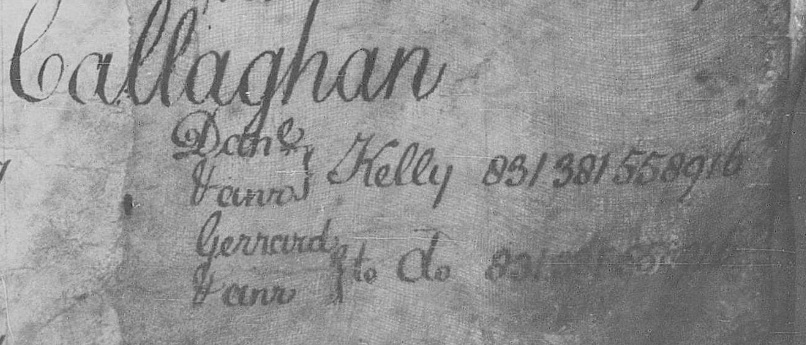 Callaghan
Dan &
& anr } Kelly 831 381 558 916
Gerrard
& anr } to do 831